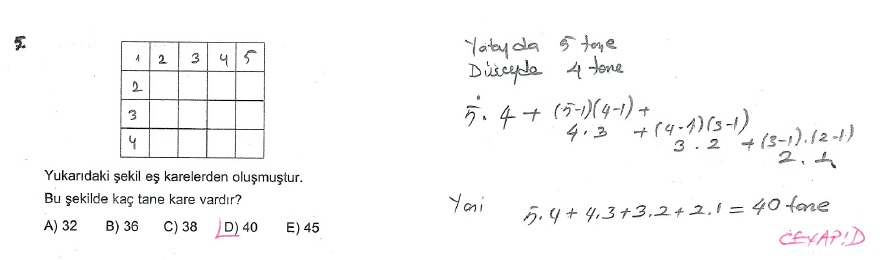 5.
1 2 3 4 5
2
3
4
Yukarıdaki şekil eş karelerden oluşmuştur.
Bu şekilde kaç tane kare vardır?
A) 32 B) 36 C) 38 D) 40 E) 45
Yatayda 5 tane
Düşeyde 4 tane
5.4 + (5-1)(4-1) +
4.3 + (4-1)(3-1)
3.2 + (3-1).(2-1)
2.1
Yani 5.4 + 4.3 + 3.2 + 2.1 = 40 tane
CEVAP:D